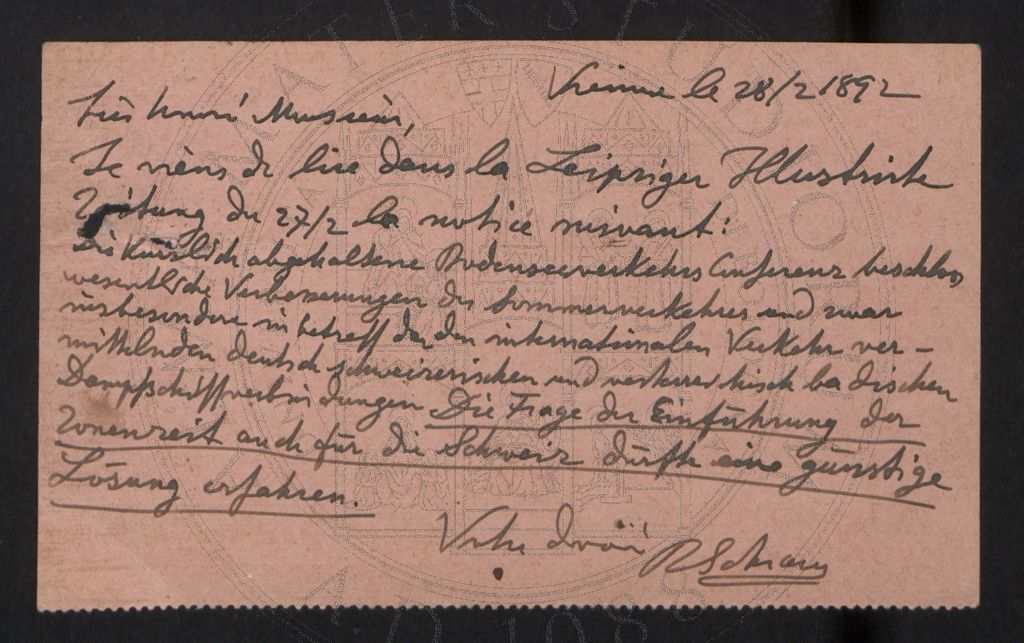 Vienne le 28/2 1892
Très honoré Monsieur,
Je viens de lire dans la Leipziger Illustrirte
Zeitung du 27/2 la notice suivant:
Die Kürzlich abgehaltene Bodenseeverkehrs Conferenz beschloss
wesentliche Verbesserungen des Sommerverkehres und zwar
insbesondere in betreff der den internationalen Verkehr ver-
mittelnden deutsch schweizerischen und badischen
Dampfschiffverbindungen Die Frage der Einführung der
Zonenzeit auch für die Schweiz dürfte eine günstige
Lösung erfahren.
Votre dévoué
RSchram
ALMA MATER STUDIORUM
A.D. 1088